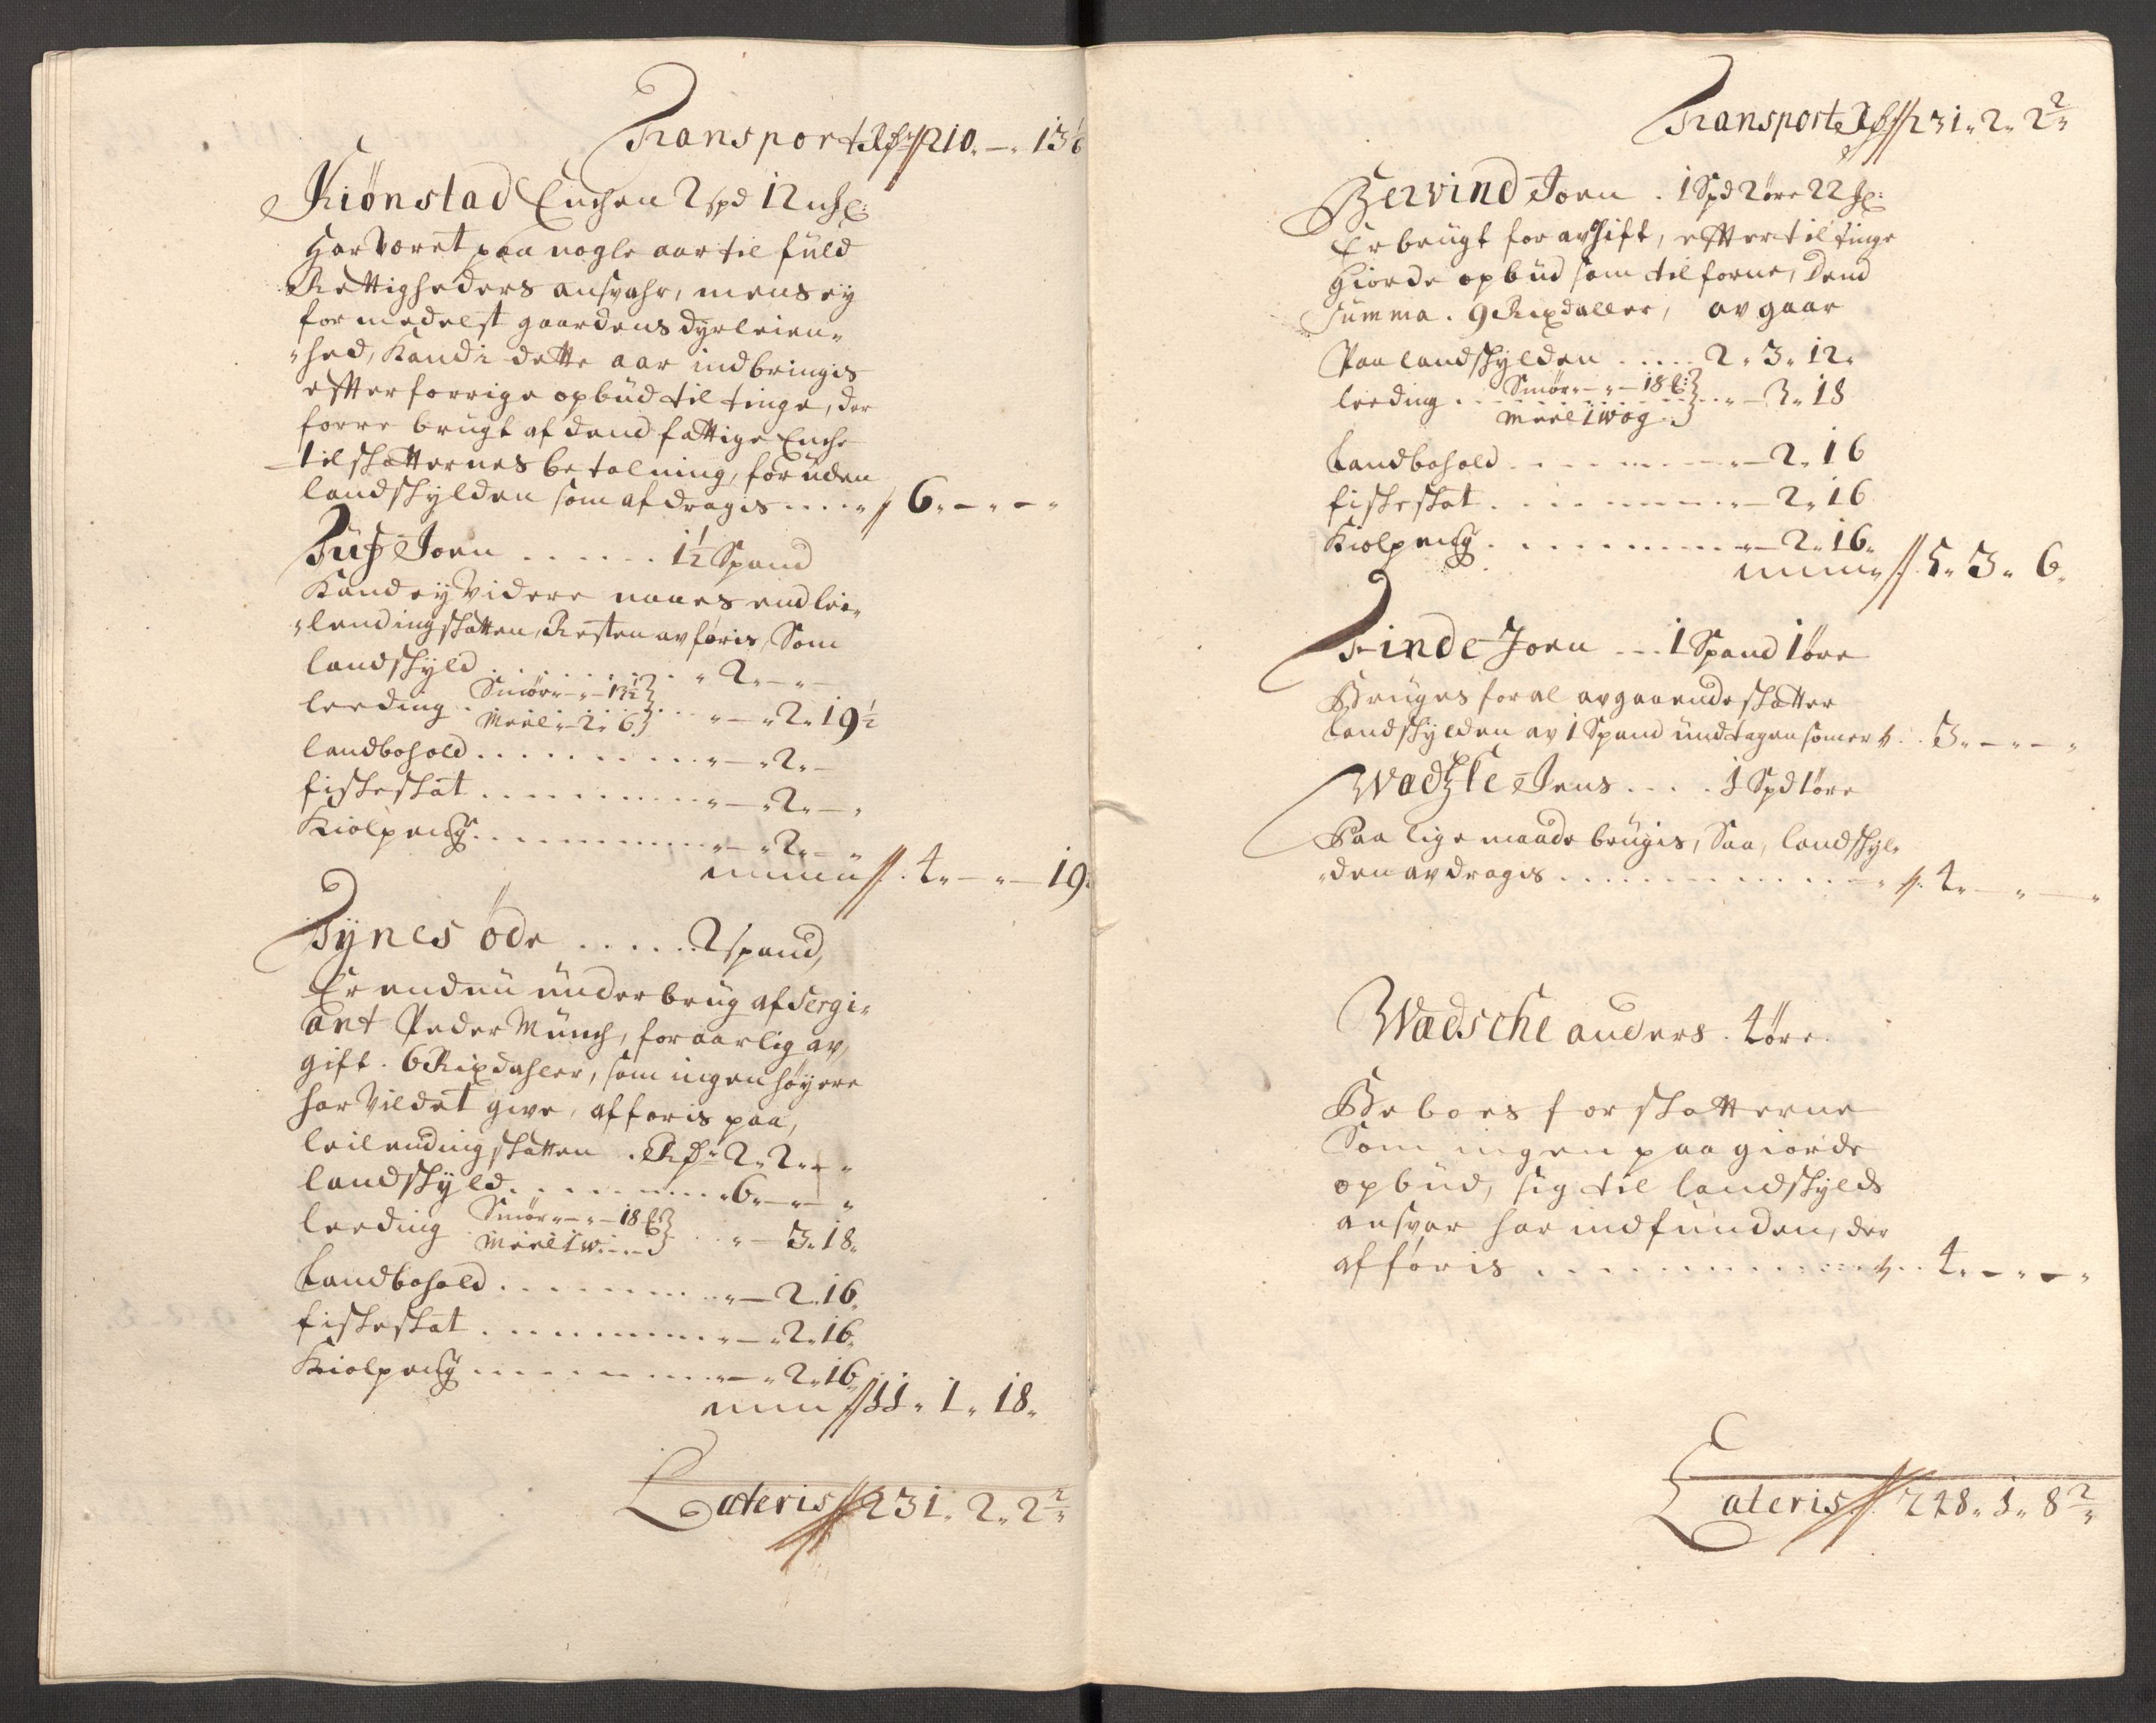 Transport Rdr 210 „ — „ 13 6
Kiönstad Enchen 2 spd 12 mkl:
Har Været paa nogle aar til fuld
Rettigheders ansvahr, mens ey
formedelst gaardens dyrleien„
„hed, Kand i dette aar indbringis
effter forrige opbüd til tinge, der
forre brugt af dend fattige Enche
til skatternes betalning, for uden
landskylden som afdragis . . . . 6 „ — „ — „
Joen . . . . . . 1½ Spand
Kand ey Videre naaes end lei„
„lendingskatten, Resten avføris, Som
landskyld . . . . . . . „ 2 „ — „ —
leeding . Smör „ — „ — 13½ . . . „ — „ 2 „ 19½
Meel „ — 2 „ 6
landbohold . . . . . . . . . „ — „ 2 „ —
fiskeskat . . . . . . . . . „ — „ 2 „ — „
Kiölpeng . . . . . . . . . „ — „ 2 „ — „
4 „ — „ — 19
Tÿnes öde . . . . . 2 spand,
Er endnü ünder brug af Sergi„
ant Peder Münch, for aarlig av„
gift . 6 Rixdahler, som ingen höyere
har Vildet give, afføris paa,
leilendingskatten . Rdr 2 „ 2 „ — „
landskyld . . . . . . . . „ 6 „ — „ — „
leeding Smör „ — „ — 18 . . „ — 3 „ 18 „
Meel 1 w . . —
Landbohold . . . . . . . . „ — 2 „ 16 „
fiskeskat . . . . . . . . . „ — „ 2 „ 16 „
Kiolpeng . . . . . . . . . „ — „ 2 „ 16 „
11 „ 1 „ 18 „
Lateris 231 „ 2 „ 2 2/„
Transport Rdr 231 „ 2 „ 2 2/„
Bervind Joen . 1 Spd 2 öre 22 mkl:
Er brugt for avgift, effter til tinge
giorde opbüd som tilforne, Dend
Summa . 9 Rixdaller, avgaar
Paa landskylden . . . . . 2 „ 3 „ 12 „
leeding . Smör „ — „ — 18 . . . „ — 3 „ 18
Meel 1 wog
Landbohold . . . . . . . . „ — 2 „ 16
fiskeskat . . . . . . . . . „ — 2 „ 16
Kiolpeng . . . . . . . . . „ — 2 „ 16 „
5 „ 3 „ 6 „
Tinde Joen . . . 1 Spand 1 öre
Bruges for al avgaaende skatter
Landskylden av 1 Spand undtagen som er . . 3 „ — „ — „
Jens . . . . 1 Spd 1 öre
Paa lige maade brugis, Saa, landskyl„
„den avdragis . . . . . . . . . . . . 4 „ — „ — „
Wadsche anders . 4 öre .
Beboes for skatterne
Som ingen paa giorde
opbüd, sig til landskylds
ansvar har indfunden, der
afføris . . . . . . . . . . . . . . 4 „ — „ — „
Lateris 248 „ 1 „ 8 2/„